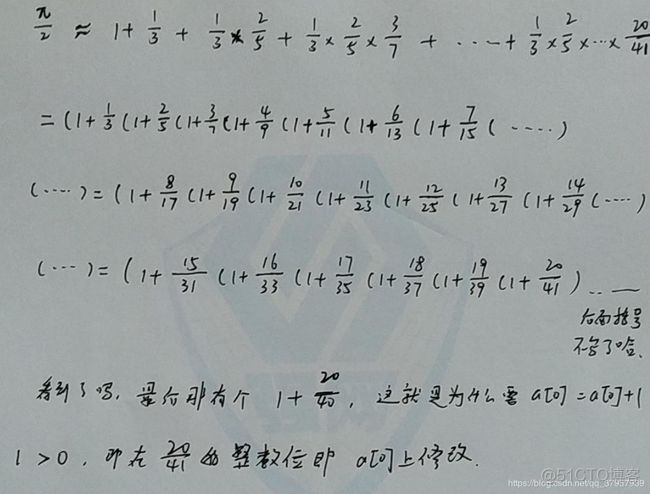 π/2 ≈ 1 + 1/3 + 1/3 × 2/5 + 1/3 × 2/5 × 3/7 + ‥‥ + 1/3 × 2/5 × ⋯ × 20/41
= (1 + 1/3 (1 + 2/5 (1 + 3/7 (1 + 4/9 (1 + 5/11 (1 + 6/13 (1 + 7/15 (‥‥‥)
(‥‥) = (1 + 8/17 (1 + 9/19 (1 + 10/21 (1 + 11/23 (1 + 12/25 (1 + 13/27 (1 + 14/29 (‥‥)
(‥‥) = (1 + 15/31 (1 + 16/33 (1 + 17/35 (1 + 18/37 (1 + 19/39 (1 + 20/41 ) ‥ —
后面括号
不写了哈.
看到了吗, 最后那有个 1 + 20/40, 这就是为什么要 a[0] = a[0]+1
1 > 0, 即在 20/41 的整数位即 a[0]上修改.
@51CTO博客
https://blog.csdn.net/qq_37957939